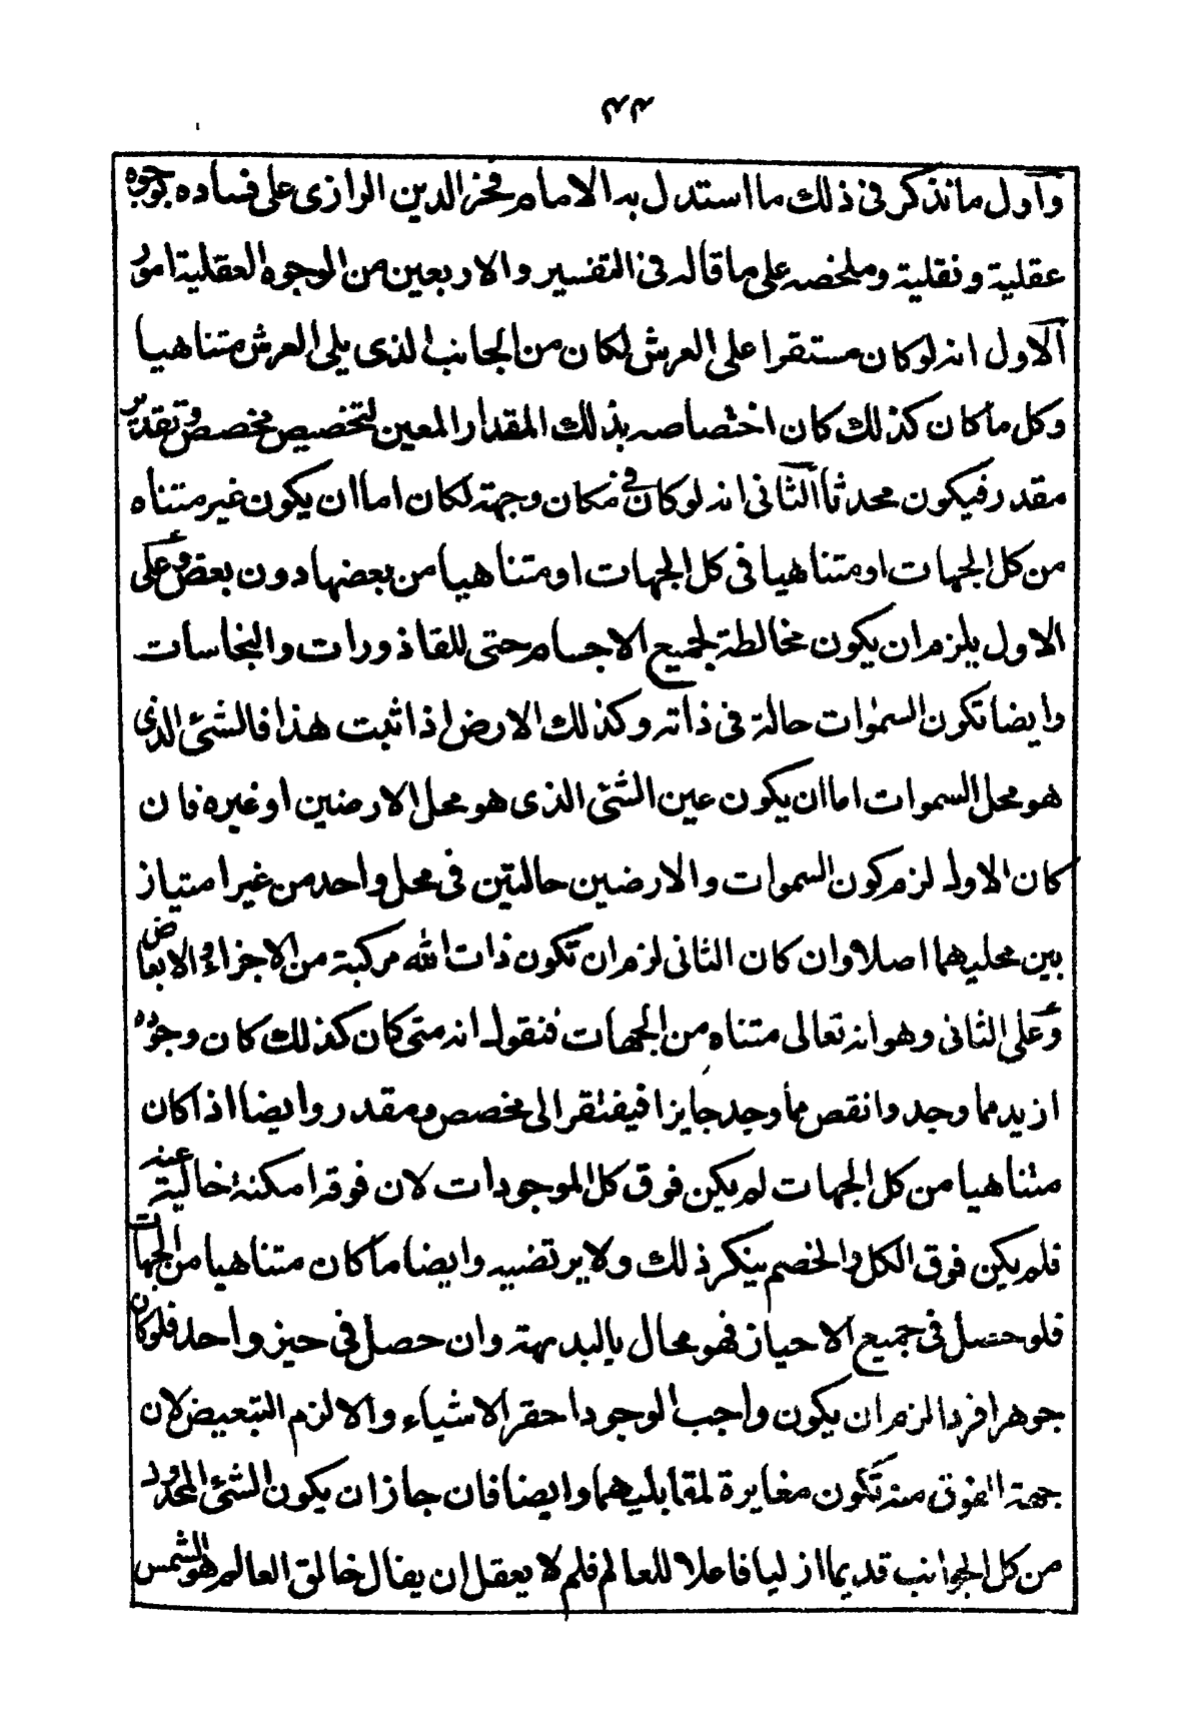 ۴۴
وآول ما نذكر فى ذلك ما استدل به الامام فخر الدين الرازى على فساده بوجوه
عقلية ونقلية وملخصه على ما قاله فى التفسير والاربعين من الوجوه العقلية امور
الآول انه لو كان مستقرا على العرش لكان من الجانب الذى يلى العرش متناهيا
وكل ما كان كذلك كان اختصاصه بذلك المقدار المعين لتخصيص مخصص وتقدير
مقدر فيكون محدثا الثانى انه لو كان فى مكان وجهة لكان اما ان يكون غير متناه
من كل الجهات او متناهيا فى كل الجهات او متناهيا من بعضها دون بعض وعلى
الاول يلزم ان يكون مخالطة لجميع الاجسام حتى للقاذورات والنجاسات
وايضا تكون السمٰوات حالة فى ذاته وكذلك الارض اذا ثبت هذا فالشئ الذى
هو محل السموات اما ان يكون عين الشئ الذى هو محل الارضين او غيره فان
كان الاول لزم كون السموات والارضين حالتين فى محل واحد من غير امتياز
بين محليهما اصلا وان كان الثانى لزم ان تكون ذات الله مركبة من الاجزاء والابعاض
وعلى الثانى وهو انه تعالى متناه من الجهات فنقول انه متى كان كذلك كان وجوده
ازيد مما وجد وانقص مما وجد جايزا فيفتقر الى مخصص ومقدر وايضا اذا كان
متناهيا من كل الجهات لم يكن فوق كل الموجودات لان فوقه امكنة خالية عنه
فلم يكن فوق الكل والخصم ينكر ذلك ولا يرتضيه وايضا ما كان متناهيا من الجهات
فلو حصل فى جميع الاحياز فهو محال بالبديهة وان حصل فى حيز واحد فلو كان
جوهرا فردا لزم ان يكون واجب الوجود احقر الاشياء والا لزم التبعيض لان
جهة الفوق منه تكون مغايرة لمقابليهما وايضا فان جاز ان يكون الشئ المحدود
من كل الجوانب قديما ازليا فاعلا للعالم فلم لا يعقل ان يقال خالق العالم هو الشمس